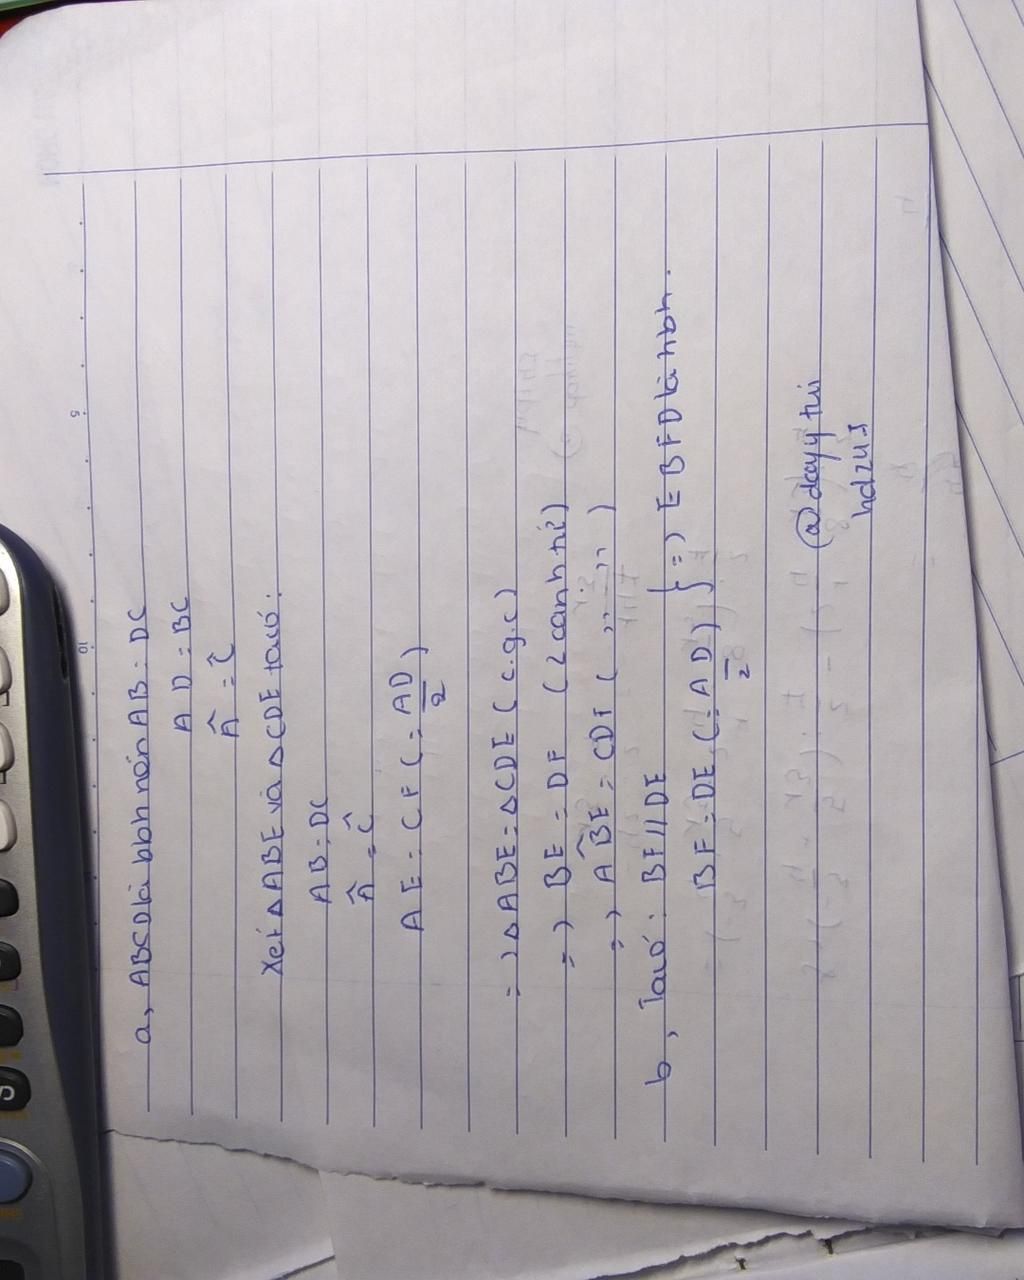 a, ABCD là hbh nên AB = DC
AD = BC
Â = Ĉ
Xét △ABE và △CDE ta có:
AB = DC
Â = Ĉ
AE = CF (= AD/2)
=> △ABE = △CDE (c.g.c)
=> BE = DF (2 cạnh t/ứ)
=> ABE = CDF ( ,, ,, )
b, Ta có: BF // DE
BF = DE (= AD/2) } => EBFD là hbh.
5
10